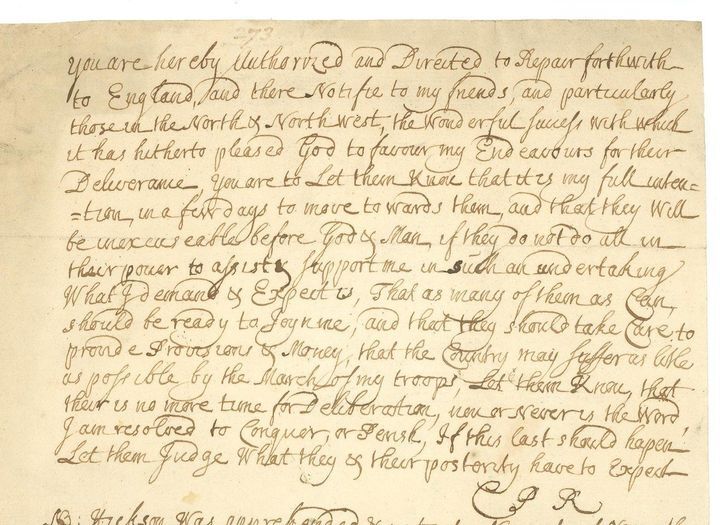 273
you are hereby Authorized and Directed to Repair forthwith
to England, and there Notifie to my friends, and particularly
those in the North & North west, the wonderful success with which
it has hitherto pleased God to favour my Endeavours for their
Deliverance, you are to Let them Know that it is my full inten=
=tion, in a few days to move towards them, and that they will
be inexcuseable before God & Man, if they do not do all in
their power to assist & support me in such an undertaking
What I demand & Expect is, That as many of them as Can,
should be ready to Joyn me, and that they should take Care to
provide Provisions & Money, that the Country may suffer as litle
as possible by the March of my troops, Let them Know, that
their is no more time for Deliberation, now or Never is the Word
I am resolved to Conquer, or Perish, If this last should hapen
Let them Judge What they & their postority have to Expect
C P R
Hickson was apprehended